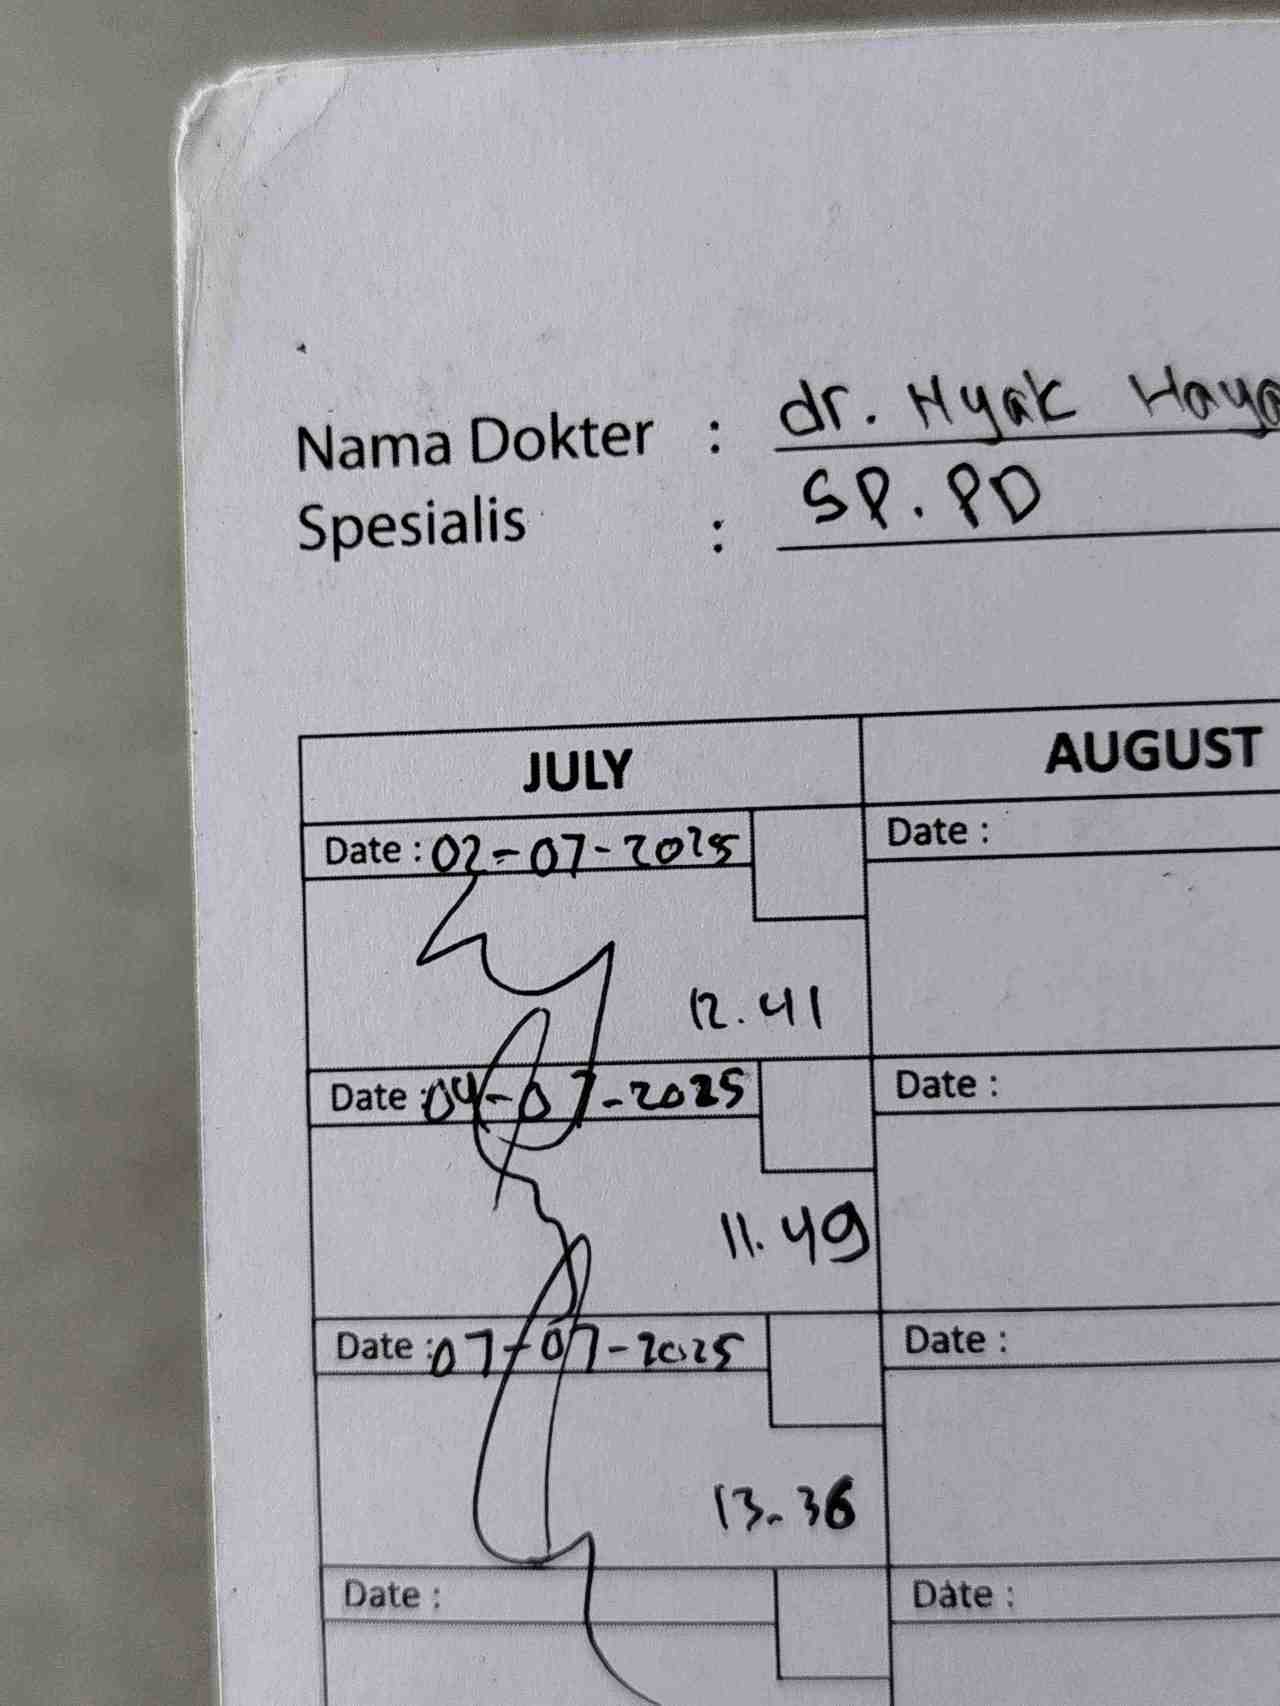 Nama Dokter : dr. Nyak Haya
Spesialis : SP. PD
JULY AUGUST
Date : 02-07-2025 Date :
12.41
Date : 04-07-2025 Date :
11.49
Date : 07-07-2025 Date :
13.36
Date : Date :